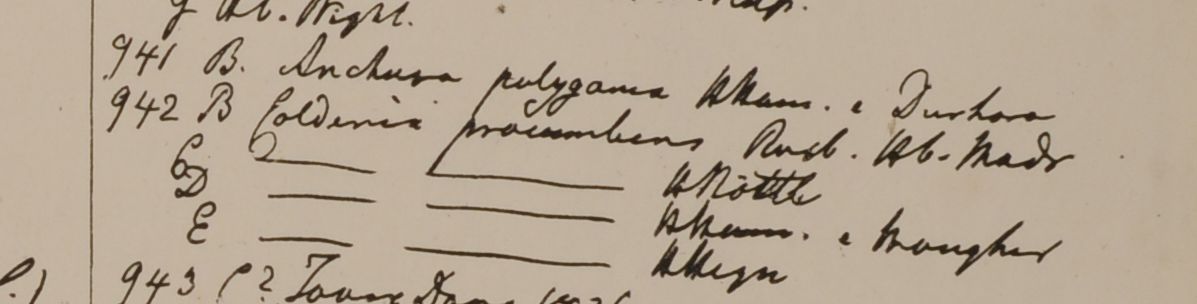 Hb. Wight.
941 B. Anchusa polygama HHam. e Durhara
942 B Coldenia procumbens Roxb. Hb. Madr
C ? — — HRottl
D — — HHam. e Mongher
E — — HHeyn
943 C?